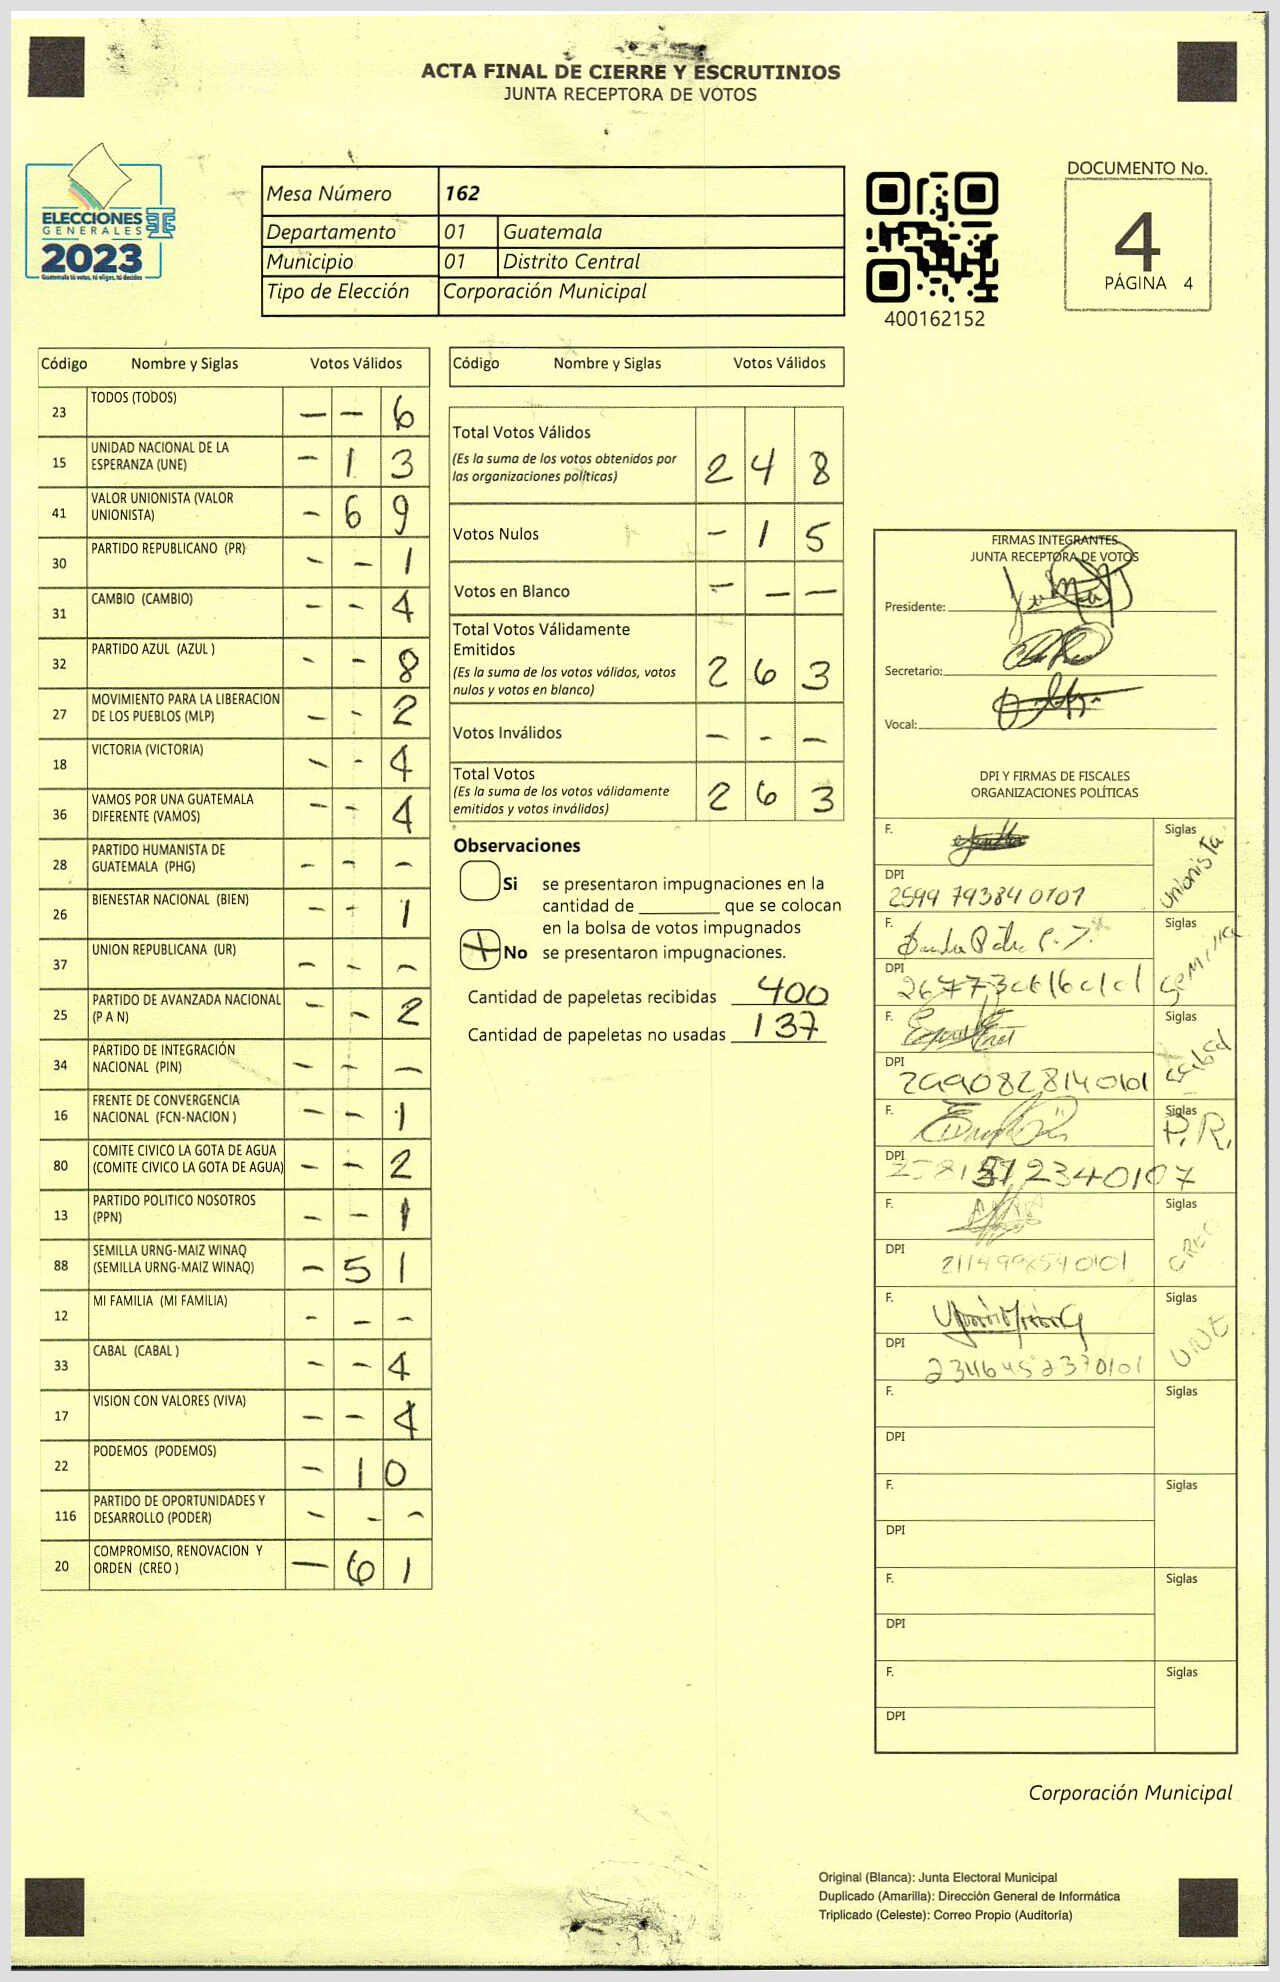 ACTA FINAL DE CIERRE Y ESCRUTINIOS
JUNTA RECEPTORA DE VOTOS
ELECCIONES
GENERALES
2023
Guatemala tú votas, tú eliges, tú decides
Mesa Número 162
Departamento 01 Guatemala
Municipio 01 Distrito Central
Tipo de Elección Corporación Municipal
400162152
DOCUMENTO No.
4
PÁGINA 4
Código Nombre y Siglas Votos Válidos
23 TODOS (TODOS) – – 6
15 UNIDAD NACIONAL DE LA ESPERANZA (UNE) – 1 3
41 VALOR UNIONISTA (VALOR UNIONISTA) – 6 9
30 PARTIDO REPUBLICANO (PR) – – 1
31 CAMBIO (CAMBIO) – – 4
32 PARTIDO AZUL (AZUL ) – – 8
27 MOVIMIENTO PARA LA LIBERACION DE LOS PUEBLOS (MLP) – – 2
18 VICTORIA (VICTORIA) – – 4
36 VAMOS POR UNA GUATEMALA DIFERENTE (VAMOS) – – 4
28 PARTIDO HUMANISTA DE GUATEMALA (PHG) – – –
26 BIENESTAR NACIONAL (BIEN) – – 1
37 UNION REPUBLICANA (UR) – – –
25 PARTIDO DE AVANZADA NACIONAL (P A N) – – 2
34 PARTIDO DE INTEGRACIÓN NACIONAL (PIN) – – –
16 FRENTE DE CONVERGENCIA NACIONAL (FCN-NACION ) – – 1
80 COMITE CIVICO LA GOTA DE AGUA (COMITE CIVICO LA GOTA DE AGUA) – – 2
13 PARTIDO POLITICO NOSOTROS (PPN) – – 1
88 SEMILLA URNG-MAIZ WINAQ (SEMILLA URNG-MAIZ WINAQ) – 5 1
12 MI FAMILIA (MI FAMILIA) – – –
33 CABAL (CABAL ) – – 4
17 VISION CON VALORES (VIVA) – – 4
22 PODEMOS (PODEMOS) – 1 0
116 PARTIDO DE OPORTUNIDADES Y DESARROLLO (PODER) – – –
20 COMPROMISO, RENOVACION Y ORDEN (CREO ) – 6 1
Código Nombre y Siglas Votos Válidos
Total Votos Válidos 2 4 8
(Es la suma de los votos obtenidos por
las organizaciones políticas)
Votos Nulos – 1 5
Votos en Blanco – – –
Total Votos Válidamente
Emitidos 2 6 3
(Es la suma de los votos válidos, votos
nulos y votos en blanco)
Votos Inválidos – – –
Total Votos 2 6 3
(Es la suma de los votos válidamente
emitidos y votos inválidos)
Observaciones
Si se presentaron impugnaciones en la
cantidad de ________ que se colocan
en la bolsa de votos impugnados
No se presentaron impugnaciones.
Cantidad de papeletas recibidas 400
Cantidad de papeletas no usadas 137
FIRMAS INTEGRANTES
JUNTA RECEPTORA DE VOTOS
Presidente:
Secretario:
Vocal:
DPI Y FIRMAS DE FISCALES
ORGANIZACIONES POLÍTICAS
F. Siglas Unionista
DPI 2599 79384 0101
F. Siglas Semilla
DPI
F. Siglas Cabal
DPI 2990828140101
F. Siglas P.R.
DPI
F. Siglas CREO
DPI 2114998540101
F. Siglas UNE
DPI 2346452370101
F. Siglas
DPI
F. Siglas
DPI
F. Siglas
DPI
F. Siglas
DPI
Corporación Municipal
Original (Blanca): Junta Electoral Municipal
Duplicado (Amarilla): Dirección General de Informática
Triplicado (Celeste): Correo Propio (Auditoría)